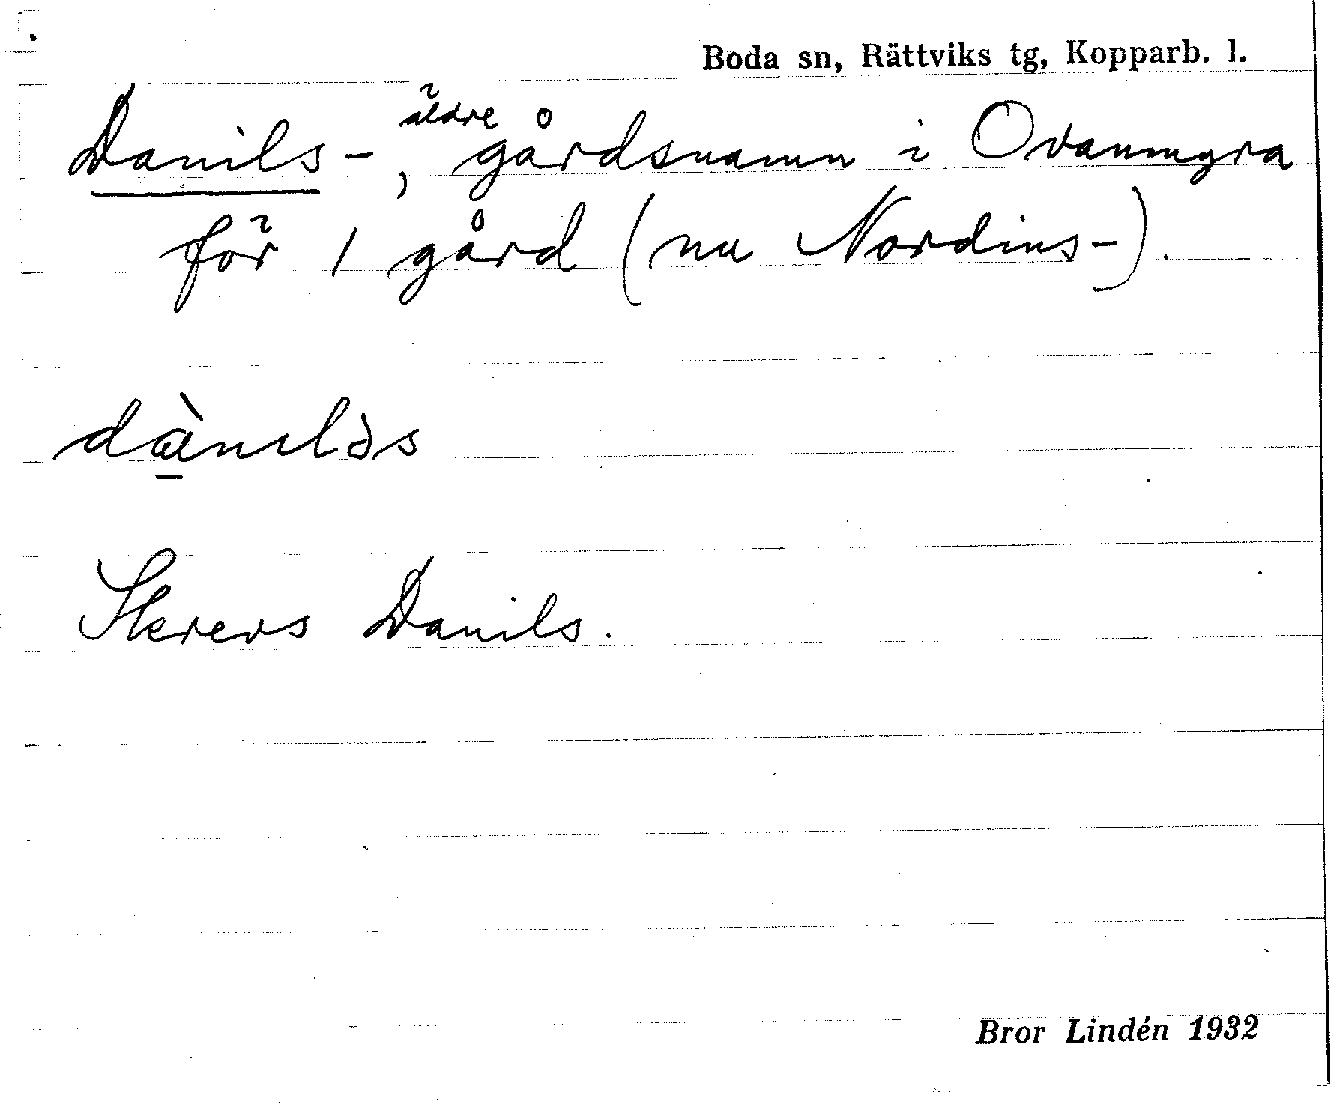 Boda sn, Rättviks tg, Kopparb. l.
Danils-, äldre gårdsnamn i Ovanmyra
för 1 gård (nu Nordins-).
dànıləs
Skrevs Danils.
Bror Lindén 1932